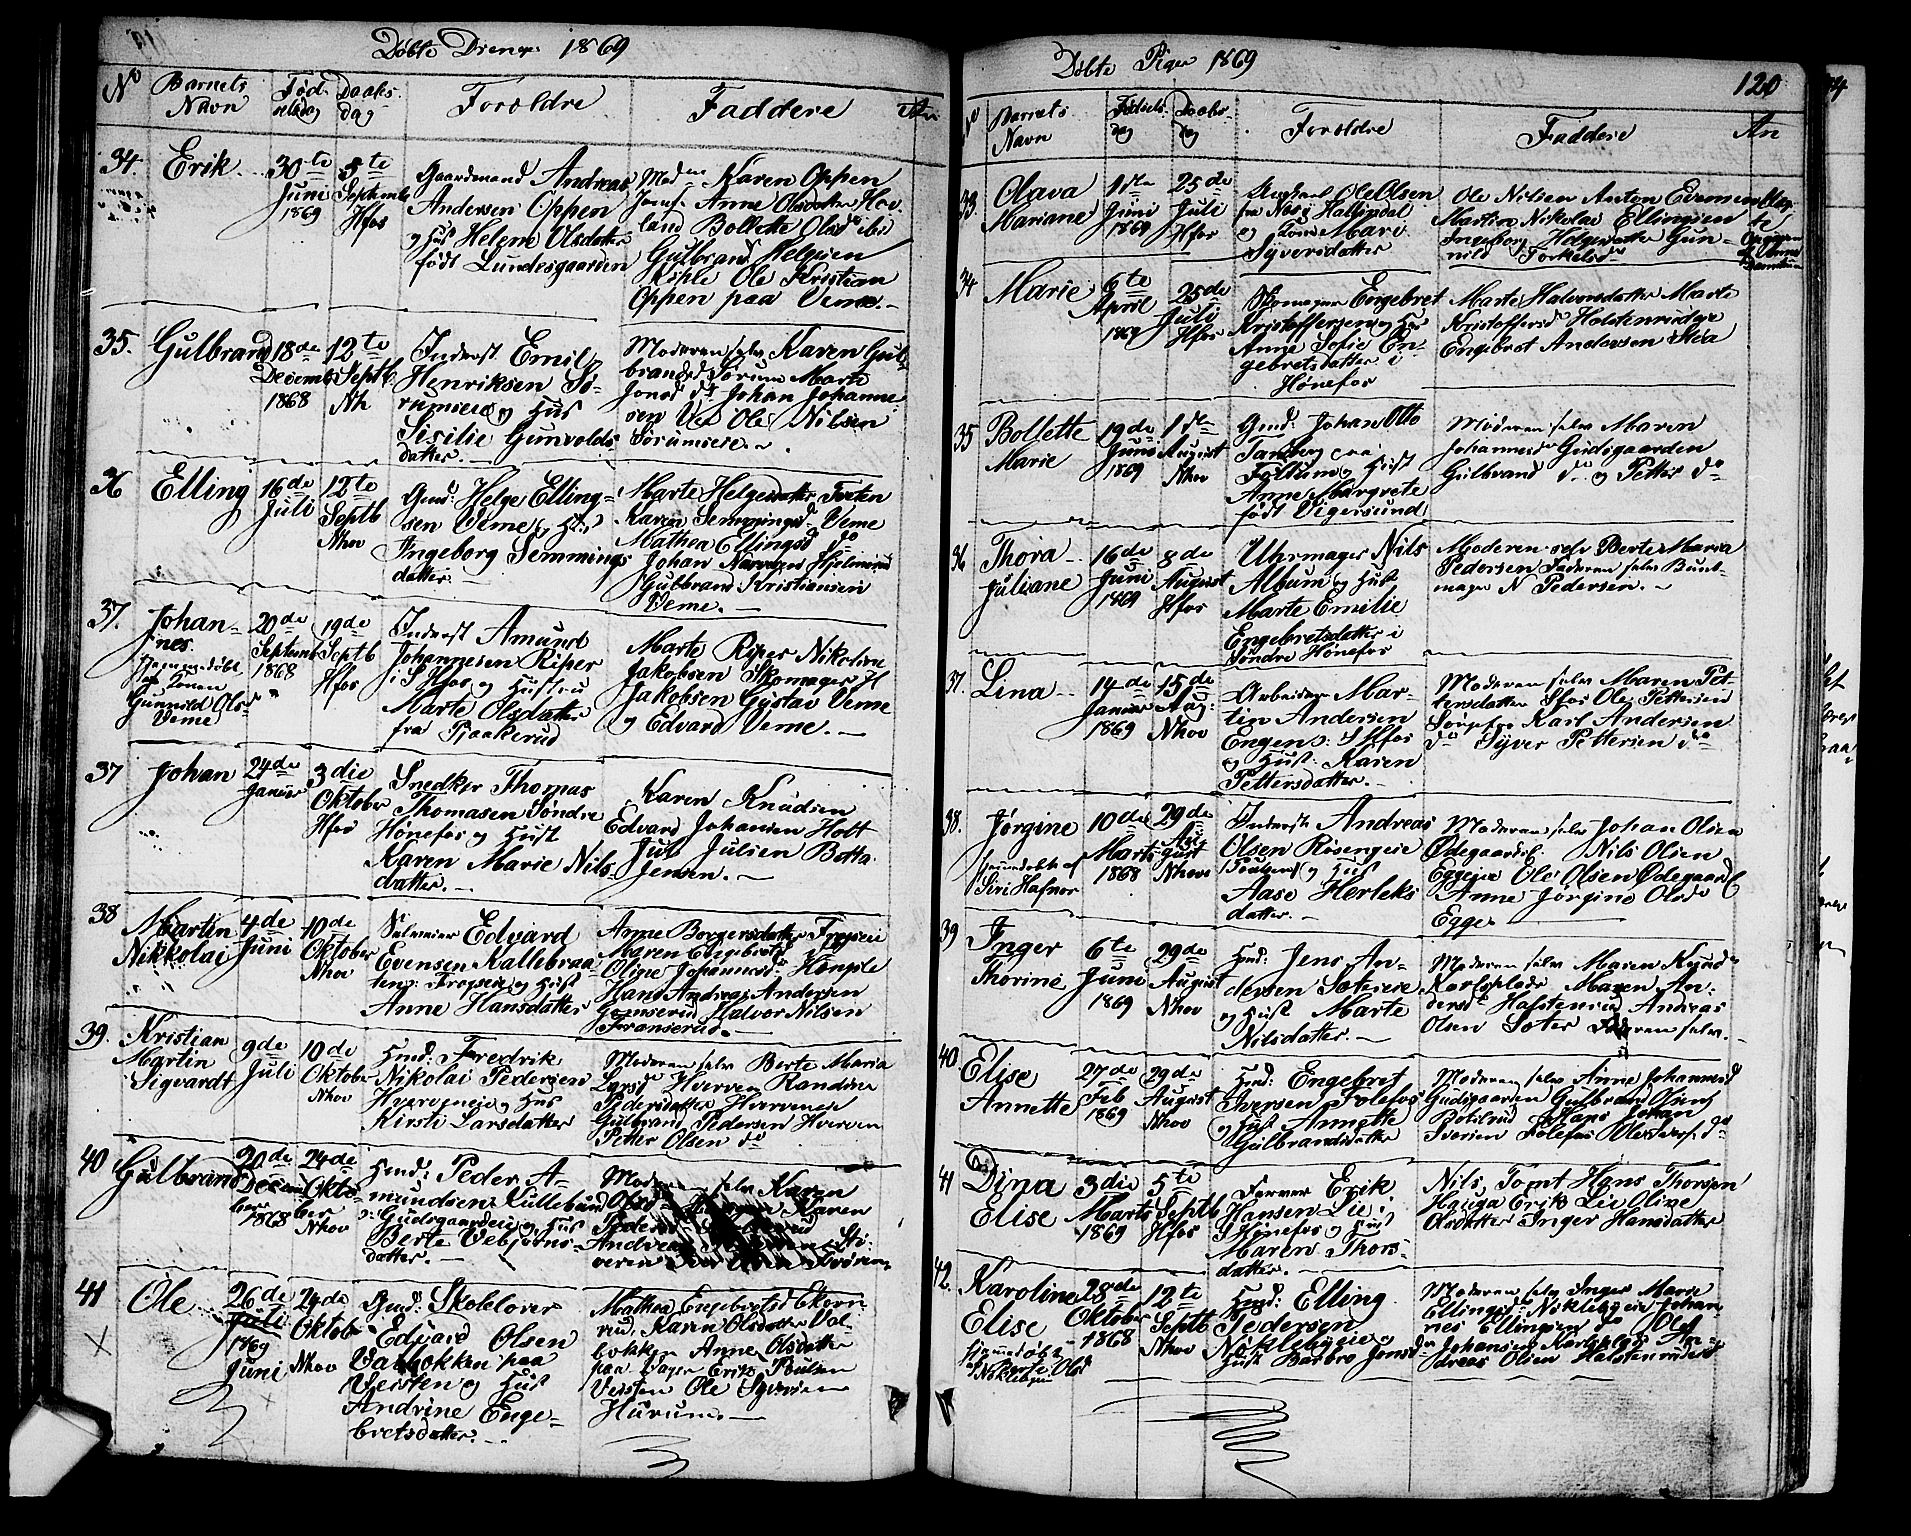 Døbte Drenge 1869
No
Barnets Navn
Fødselsdag
Daabsdag
Forældre
Faddere
34.
Erik
30te Juni 1869
5te Septemb Hfos
Gaardmand Andreas
Andersen Oppen
og Hus Helene Olsdatter
født Lundesgaarden
Karen Oppen
Anne Olsdatter Hov-
land Bollette Olsd ibi
Gulbrand Helgesen
Ole Kristian
Oppen paa Veme.-
35.
Gulbrand
18de Decemb 1868
12te Septb Nh
Inderst Emil
Henriksen Sø-
rumseie og Hus
Sisilie Gunvolds-
datter.-
Moderen selv Karen Gul-
brandsd Sørum Marte
Jonsd do Johan Johanne-
sen Ole Nilsen
Sørumseie.-
36
Elling
16de Juli
12te Septb Nhov
Gmd: Helge Elling-
sen Veme og Hus
Ingeborg Semmings-
datter.-
Marte Helgesdatter
Karen Semmingsd Veme
Mathea Ellingsd do
Johan
Gulbrand Kristiansen
Veme.-
37.
Johan-
nes
Hjemmedøbt
Gunnild Ols-
Veme
20de Septemb 1868
19de Septb Hfos
Inderst Amund
Johannesen Riper
i S Hfos og Hustru
Marte Olsdatter
fra Tjaakerud
Marte Riper Nikoline
Jakobsen Skomager H
Jakobsen Gustav Veme
og Edvard Veme.-
37
Johan
24de Januar
3die Oktober Hfos
Snedker Thomas
Thomasen Søndre
Hønefos og Hust
Karen Marie Nils-
datter.-
Karen Knudsen
Edvard Johansen Holt
Jul Julsen Betta
Jensen.-
38
Martin
Nikkolai
4de Juni
10de Oktober Nhov
Selveier Edvard
Evensen Kallebraa-
ten Frogseie og Hust
Anne Hansdatter
Anne Borgersdatter Frogseie
Maren Engebretsd
Oline Johannesd
Hans Andreas Andersen
Halvor Nilsen
39.
Kristian
Martin
Sigvardt
9de Juli
10de Oktober Nhov
Hmd: Fredrik
Nikolai Pedersen
Hverveneie og Hus
Kirsti Larsdatter
Moderen selv Berte Maria
Larsd Hverven Randine
Pedersdatter Hverveneie
Gulbrand Pedersen Hverven
Petter Olsen do
40
Gulbrand
20de December 1868
24de Oktober Nhov
Hmd: Peder A-
mundsen Kullebund
og Hus
Berte Vebjørns-
datter.-
Moderen selv Karen
Olsd Karen
Andreas
41
Ole
26de Juli 1869 Juni
24de Oktob Nhov
Gmd: Skolelærer
Edvard Olsen
Valbokken paa
Veisten og Hus
Andrine Enge-
bretsdatter.-
Mathea Engebretsd
Karen Olsdatter Val-
bokken Anne Olsdatter
paa Erik Poulsen
Veisten Ole Syversen
Hurum.-
Døbte Piger 1869
120
No
Barnets Navn
Fødselsdag
Daabsdag
Forældre
Faddere
An
33.
Olava
Mariane
1ste Juni 1869
25de Juli Hfos
Ole Olsen
fra Næs Hallingdal
og Kone Mari
Syversdatter
Ole Nilsen Anton Evensen
Martin Nikolai Ellingsen
Ingeborg Helgesdatter Gun-
nild Torkelsd
34
Marie
6te April 1869
25de Juli Hfos
Skomager Engebret
Kristoffersen og Hus
Anne Sofie En-
gebretsdatter i
Hønefos
Marte Halvorsdatter Marte
Kristoffersd Halstenrudeie
Engebret Andersen
35
Bollette
Marie
19de Juni 1869
1ste August Nhov
Gmd: Johan Otto
Tandberg paa
Follum og Hust
Anne Margrete
født Vigersund
Moderen selv Maren
Johannesd Gudsgaarden
Gulbrand do og Petter do
36
Thora
Juliane
16de Juni 1869
8de August Hfos
Uhrmager Nils
Album og Hust
Marte Emilie
Engebretsdatter i
Søndre Hønefos
Moderen selv Berte Maria
Pedersen Faderen selv Bunt-
mager N Pedersen.-
37.
Lina
14de Januar 1869
15de Aug: Nhov
Arbeider Mar-
tin Andersen
Engen S Hfos
og Hust: Karen
Pettersdatter.-
Moderen selv Maren Pet-
tersdatter Sfos Ole Pettersen
Karl Andersen
do Syver Pettersen do
38.
Jørgine
Hjemmedøbt af
Siri Hafnor
10de Marts 1868
29de August Nhov
Inderst Andreas
Olsen Rosengeie
og Hust
Aase Herleks-
datter.-
Moderen selv Johan Olsen
Ødegaard Nils Olsen
Eggeeie Ole Olsen Ødegaard
Anne Jørgine Olsd
Egge
39
Inger
Thorine
6te Juni 1869
29de August Nhov
Hmd: Jens An-
dersen Sotereie
og Hust Marte
Nilsdatter.-
Moderen selv Maren Knud-
Karlsplads Maren An-
dersd Halstenrud Andreas
Olsen Soter Faderen selv.-
40.
Elise
Annette
27de Feb 1869
29de August Nhov
Hmd: Engebret
Iversen Folefos
og Hust Annette
Gulbrandsdatter
Moderen selv Anne Johannesd
Gudsgaarden Gulbrand Olsen
Hans Johan
Iversen Folefos do
41
Dina
Elise
3die Marts 1869
5te Septb Hfos
Farver Erik
Hansen Lie i
Hønefos og Hust
Maren Thors-
datter.-
Nils Tomt Hans Thorsen
Hauga Erik Lie Oline
Olsdatter Inger Hansdatter
42.
Karoline
Elise
Hjemmedøbt
af Berte Olsd
28de Oktober 1868
12te Septb Nhov
Hmd: Elling
Pedersen
Nøklebyeie og
Hust Barbro Jonsd
Moderen selv Inger Marie
Ellingsd Nøklebyeie Johan-
nes Ellingsen do Ole
Johansen Karlsplads An-
dreas Olsen Halstenrudeie